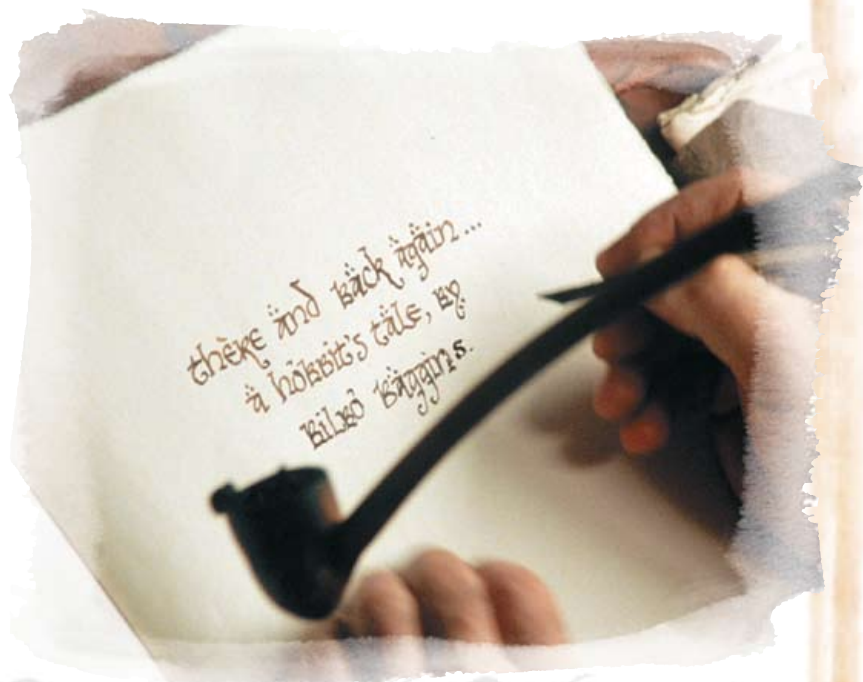 there and back again...
a hobbit's tale, by
bilbo baggins.